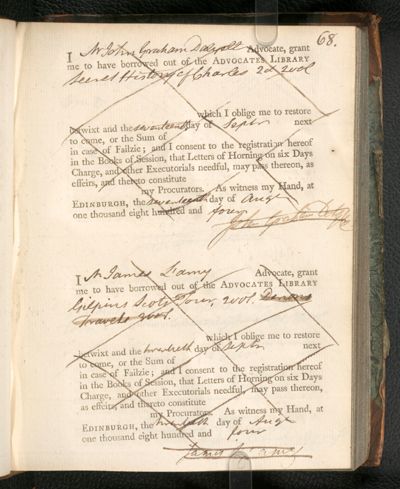 68.
I Mr John Graham Dalyell Advocate, grant
me to have borrowed out of the ADVOCATES LIBRARY
Secret History of Charles 2d 2 vols
which I oblige me to restore
betwixt and the seventeenth day of Septr next
to come, or the Sum of
in case of Failzie; and I consent to the registration hereof
in the Books of Session, that Letters of Horning on six Days
Charge, and other Executorials needful, may pass thereon, as
effeirs, and thereto constitute
my Procurators. As witness my Hand, at
EDINBURGH, the seventeenth day of Augt
one thousand eight hundred and four
John Graham Dalyell
I Mr James L'amy Advocate, grant
me to have borrowed out of the ADVOCATES LIBRARY
Gilpins Scots Tour, 2 vols.
Travels 2 vols.
which I oblige me to restore
betwixt and the twentieth day of Septr next
to come, or the Sum of
in case of Failzie; and I consent to the registration hereof
in the Books of Session, that Letters of Horning on six Days
Charge, and other Executorials needful, may pass thereon,
as effeirs, and thereto constitute
my Procurators. As witness my Hand, at
EDINBURGH, the twentieth day of Augt
one thousand eight hundred and four
James L'amy